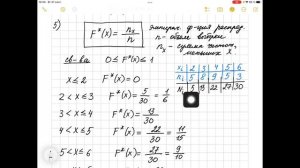 5) F*(x) = nₓ/n
эмпирич. ф-ция распред.
n - объем выборки
nₓ - сумма частот, меньших x
св-ва 0 ≤ F*(x) ≤ 1
xᵢ 2 3 4 5 6
nᵢ 5 8 9 5 3
Nᵢ 5 13 22 27 30
x ≤ 2 F*(x) = 0
2 < x ≤ 3 F*(x) = 5/30 = 1/6
3 < x ≤ 4 F*(x) = 13/30
4 < x ≤ 5 F*(x) = 22/30 = 11/15
5 < x ≤ 6 F*(x) = 27/30 = 9/10